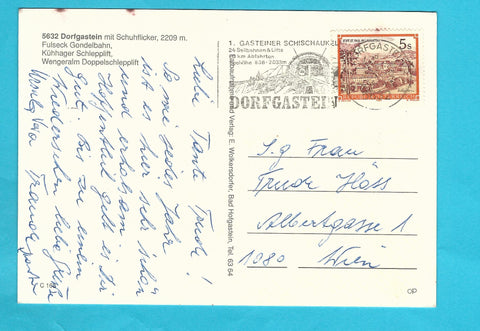 5632 Dorfgastein mit Schuhflicker, 2209 m.
Fulseck Gondelbahn,
Kühhager Schlepplift,
Wengeralm Doppelschlepplift
Liebe Tante Trude!
So wie jedes Jahr
ist es hier sehr schön
und erholsam.
Hoffentlich geht es Dir
gut. Bis zu einem
Wiedersehen liebe Grüße
1. GASTEINER SCHISCHAUKEL
24 Seilbahnen & Lifte
DORFGASTEIN
DORFGASTEIN
5s
Verlag: E. Wolkersdorfer, Bad Hofgastein, Tel. 63 64
S.g. Frau
Trude Höss
Albertgasse 1
1080 Wien